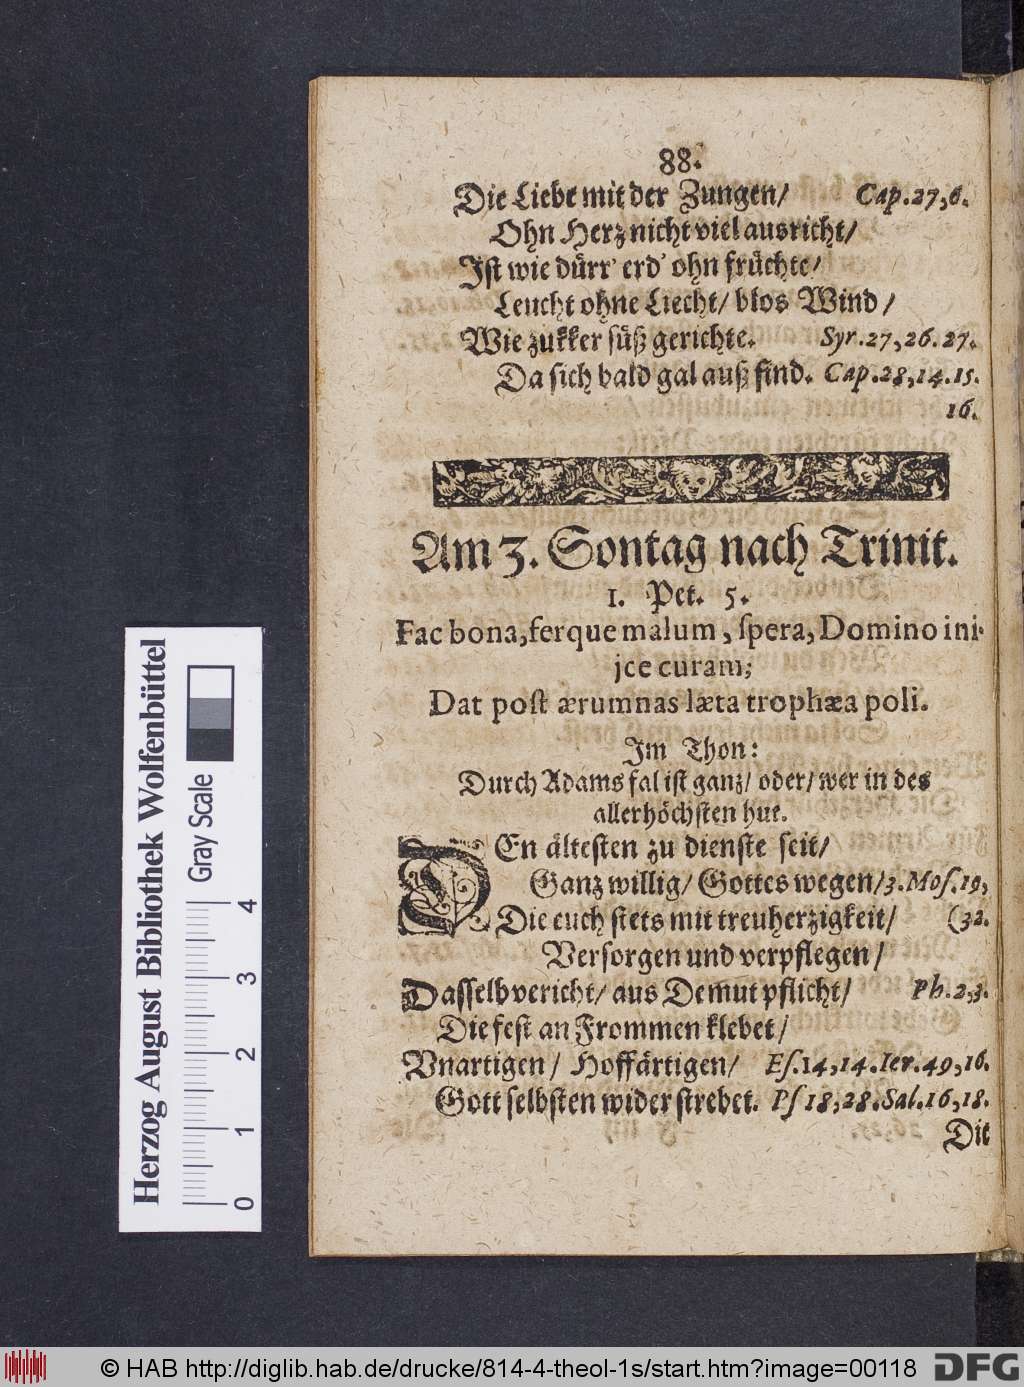 88.
Die Liebe mit der Zungen/ Cap.27,6.
Ohn Herz nicht viel ausricht/
Ist wie dürr' erd' ohn früchte/
Leucht ohne Liecht/ blos Wind/
Wie zukker süß gerichte. Syr.27,26.27.
Da sich bald gal auß find. Cap.28,14.15.
16.
Am 3. Sontag nach Trinit.
1. Pet. 5.
Fac bona, ferque malum, ſpera, Domino ini-
jce curam;
Dat poſt ærumnas læta trophæa poli.
Im Thon:
Durch Adams fal ist ganz/ oder/ wer in des
allerhöchsten hut.
DEn ältesten zu dienste seit/
Ganz willig/ Gottes wegen/ 3.Moſ.19,
Die euch stets mit treuherzigkeit/ (32.
Versorgen und verpflegen/
Dasselb vericht/ aus Demut pflicht/ Ph.2,3.
Die fest an Frommen klebet/
Vnartigen/ Hoffärtigen/ Eſ.14,14.Ier.49,16.
Gott selbsten widerstrebet. Pſ 18,28.Sal.16,18.
Die
Herzog August Bibliothek Wolfenbüttel
Gray Scale
0 1 2 3 4
© HAB http://diglib.hab.de/drucke/814-4-theol-1s/start.htm?image=00118
DFG